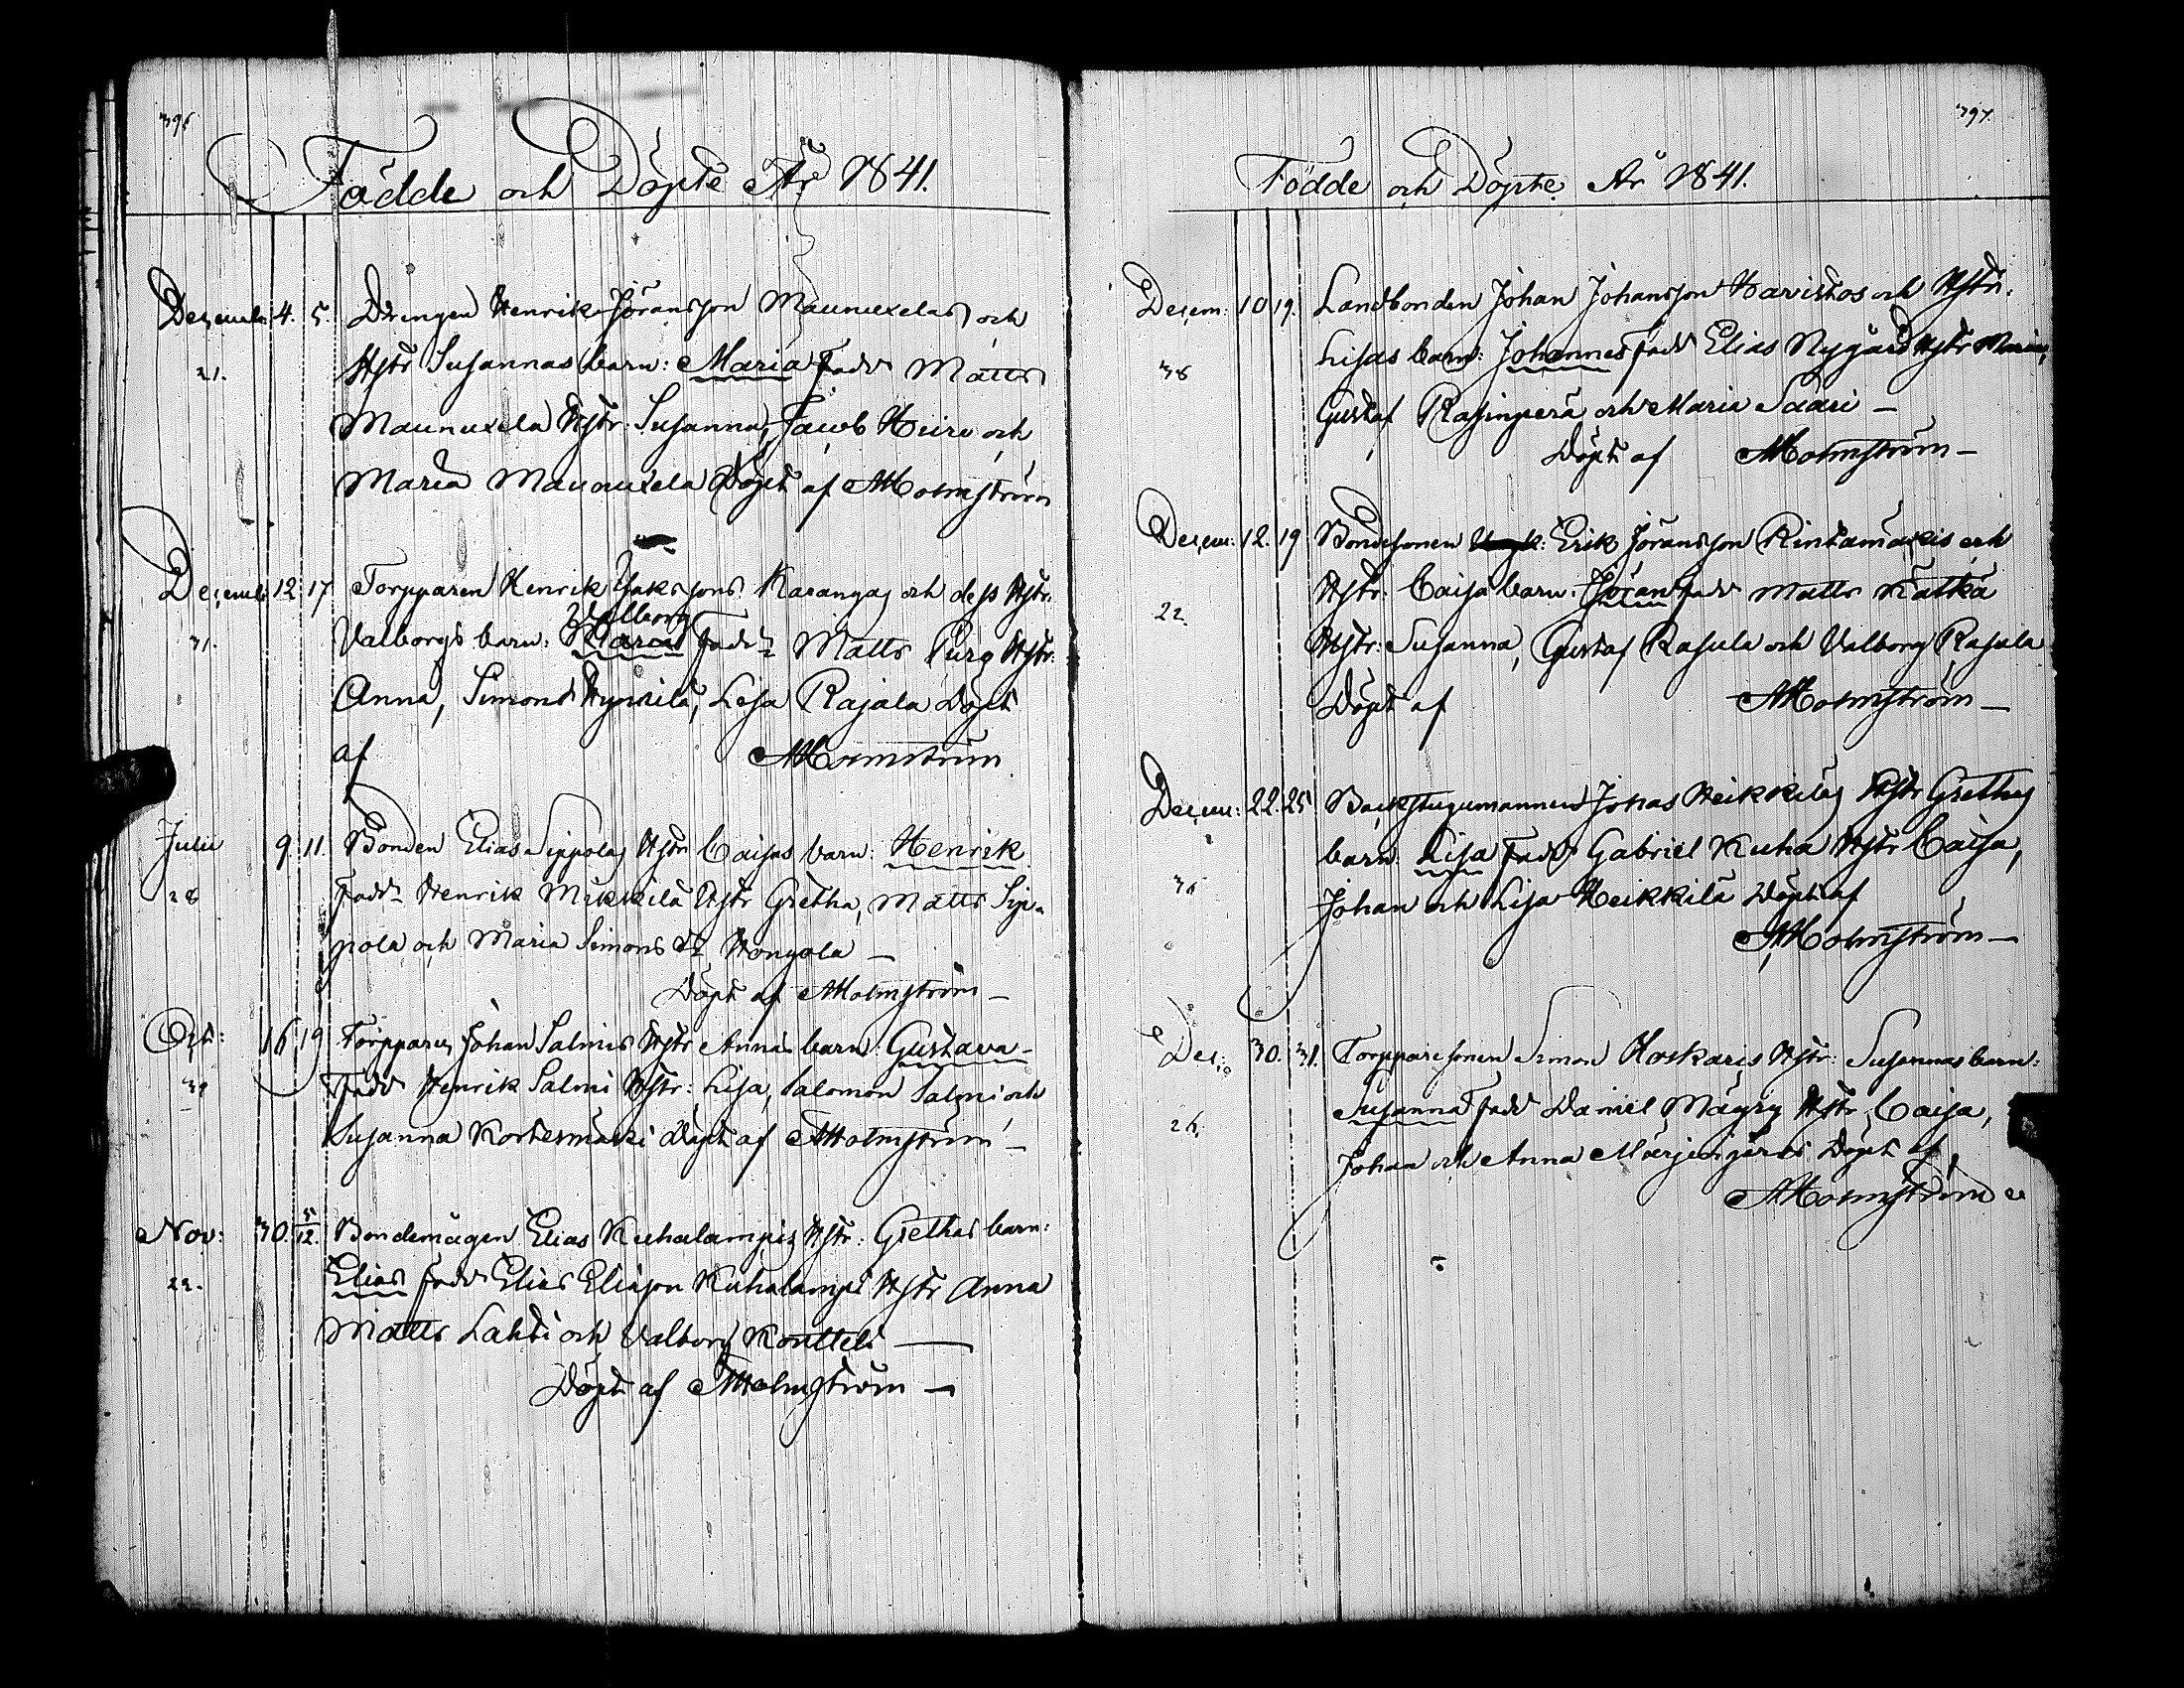 396
Födde och Döpte År 1841.
Decemb: 4. 5. Drengen Henrik Jöransson Maunuxelas och
21. Hstr Susannas barn: Maria Fadd Matts
Maunuxela Hstr: Susanna, Jacob Heiro och
Maria Maunuxela Döpt af AHolmström
Decemb 12 17 Torpparen Henrik Isaksons Karangas och dess Hstr:
Valborg
31. Valborgs barn: Fadd Matts Purg Hstr:
Anna, Simon Hyvilä, Lisa Rajala Döpt
af AHolmström
Julii 9. 11. Bonden Elias Sippolas Hstr Caisas barn: Henrik
28 Fadd Henrik Mikkilä Hstr Gretha, Matts Sip-
pola och Maria Simons dr Hongola —
Döpt af AHolmström —
Oct: 16 19 Torpparen Johan Salmis Hstr Annas barn: Gustava —
39 Fadd Henrik Salmi Hstr: Lisa, Salomon Salmi och
Susanna Kortesmäki Döpt af AHolmström —
Nov: 30. 5/12. Bondemågen Elias Kuhalampis Hstr: Grethas barn:
22. Elias Fadd Elias Eliasson Kuhalampi Hstr Anna
Matts Lahti och Valborg Kontteli —
Döpt af AHolmström —
397.
Födde och Döpte År 1841.
Decem: 10 19. Landbonden Johan Johansson Havistos och Hstr:
38 Lisas barn: Johannes Fadd Elias Nygård Hstr Maria,
Gustaf Rasinperä och Maria Saari —
Döpt af AHolmström —
Decem: 12. 19 Bondesonen Erik Jöransson Rintamäkis och
22. Hstr: Caisa barn: Jöran Fadd Matts Kätkä
Hstr: Susanna, Gustaf Rasula och Valborg Rasula
Döpt af AHolmström —
Decem: 22. 25 Backstugumannen Johas Heikkiläs Hstr Grethas
36 barn: Lisa Fadd Gabriel Kuha Hstr Caisa,
Johan och Lisa Heikkilä Döpt af
AHolmström —
Dec: 30. 31. Torpparesonen Simon Koskaris Hstr: Susannas barn:
26. Susanna Fadd Daniel Mägry Hstr Caisa,
Johan och Anna Märjenjärvi Döpt af
AHolmström